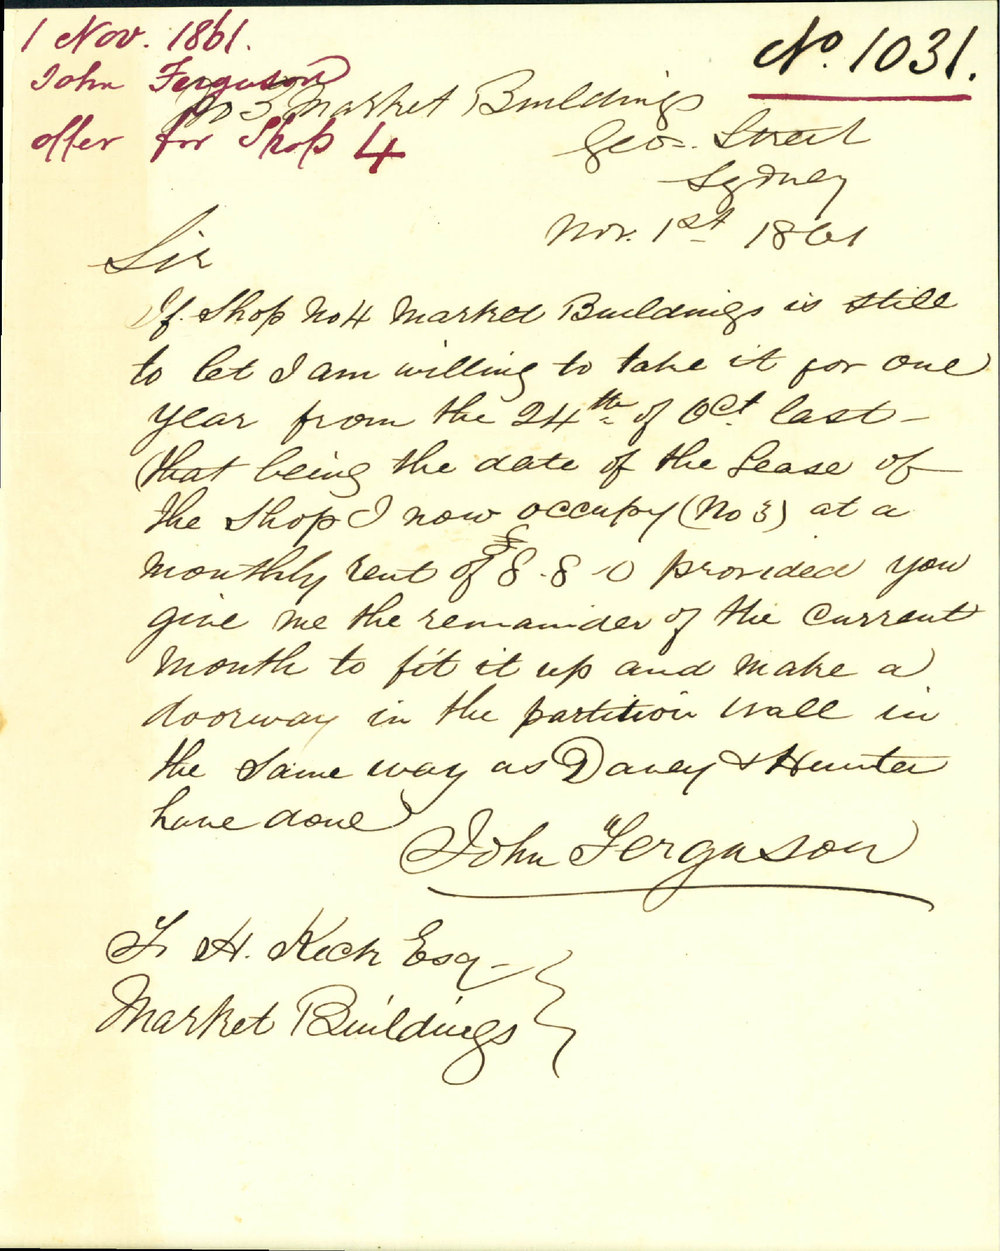 1 Nov. 1861.
John Ferguson
offer for Shop 4
No. 1031.
No 3 Market Buildings
Geo. Street
Sydney
Nov. 1st 1861
Sir
If Shop No 4 Market Buildings is still
to let I am willing to take it for one
year from the 24th of Oct. last -
(that being the date of the Lease of
the Shop I now occupy (No 3) at a
monthly rent of £8.8.0 provided you
give me the remainder of the current
month to fit it up and make a
doorway in the partition wall in
the same way as Davey & Hunter
have done
John Ferguson
H. Keck Esq -
Market Buildings